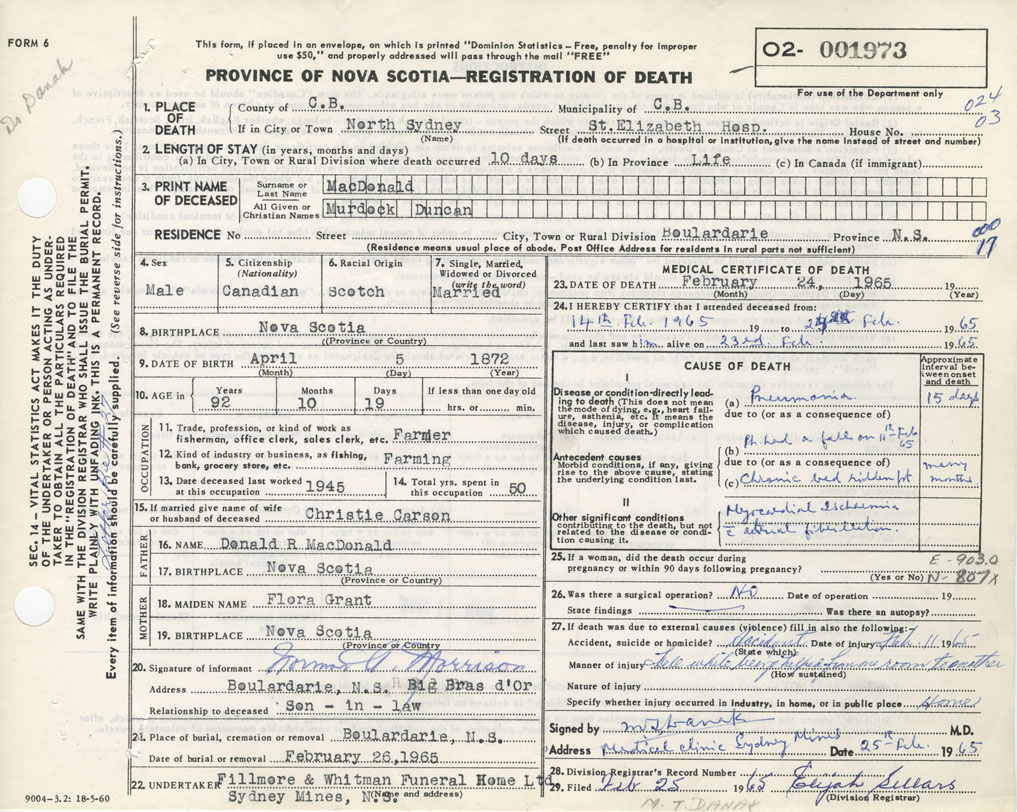 FORM 6
This form, if placed in an envelope, on which is printed "Dominion Statistics – Free, penalty for improper
use $50," and properly addressed will pass through the mail "FREE"
PROVINCE OF NOVA SCOTIA—REGISTRATION OF DEATH
O2- 001973
For use of the Department only
024
03
Dr Danak
1. PLACE OF DEATH County of C.B. Municipality of C.B.
If in City or Town North Sydney Street St.Elizabeth Hosp. House No.
(Name) (If death occurred in a hospital or institution, give the name instead of street and number)
2. LENGTH OF STAY (in years, months and days)
(a) In City, Town or Rural Division where death occurred 10 days (b) In Province Life (c) In Canada (if immigrant)
3. PRINT NAME OF DECEASED Surname or Last Name MacDonald
All Given or Christian Names Murdock Duncan
RESIDENCE No Street City, Town or Rural Division Boulardarie Province N.S.
000
17
(Residence means usual place of abode. Post Office Address for residents in rural parts not sufficient)
4. Sex Male
5. Citizenship (Nationality) Canadian
6. Racial Origin Scotch
7. Single, Married, Widowed or Divorced (write the word) Married
8. BIRTHPLACE Nova Scotia
(Province or Country)
9. DATE OF BIRTH April 5 1872
(Month) (Day) (Year)
10. AGE in Years 92 Months 10 Days 19 If less than one day old hrs. or min.
OCCUPATION
11. Trade, profession, or kind of work as
fisherman, office clerk, sales clerk, etc. Farmer
12. Kind of industry or business, as fishing,
bank, grocery store, etc. Farming
13. Date deceased last worked at this occupation 1945
14. Total yrs. spent in this occupation 50
15. If married give name of wife
or husband of deceased Christie Carson
FATHER
16. NAME Donald R MacDonald
17. BIRTHPLACE Nova Scotia
(Province or Country)
MOTHER
18. MAIDEN NAME Flora Grant
19. BIRTHPLACE Nova Scotia
(Province or Country)
20. Signature of informant Norman A. Morrison
Address Boulardarie, N.S. R Big Bras d'Or
Relationship to deceased Son - in - law
21. Place of burial, cremation or removal Boulardarie, N.S.
Date of burial or removal February 26,1965
22. UNDERTAKER Fillmore & Whitman Funeral Home Ltd
Sydney Mines, N.S. (Name and address)
9004-3.2: 18-5-60
MEDICAL CERTIFICATE OF DEATH
23. DATE OF DEATH February 24, 1965 19
(Month) (Day) (Year)
24. I HEREBY CERTIFY that I attended deceased from:
14th Feb. 1965 19 to 24th Feb. 1965
and last saw him alive on 23rd Feb. 1965
CAUSE OF DEATH
Approximate interval between onset and death
I
Disease or condition directly leading to death (This does not mean the mode of dying, e.g., heart failure, asthenia, etc. It means the disease, injury, or complication which caused death.)
(a) Pneumonia 15 days
due to (or as a consequence of)
Pt. had a fall on 11th Feb 65
(b)
Antecedent causes
Morbid conditions, if any, giving rise to the above cause, stating the underlying condition last.
due to (or as a consequence of)
(c) Chronic bed ridden pt many months
II
Other significant conditions
contributing to the death, but not related to the disease or condition causing it.
Myocardial Ischaemia
c atrial fibrillation.
25. If a woman, did the death occur during
pregnancy or within 90 days following pregnancy?
(Yes or No)
E-903.0
N-807X
26. Was there a surgical operation? NO Date of operation 19
State findings Was there an autopsy?
27. If death was due to external causes (violence) fill in also the following:
Accident, suicide or homicide? Accident Date of injury Feb. 11 1965
(State which)
Manner of injury Fell while being helped from one room to another
(How sustained)
Nature of injury
Specify whether injury occurred in industry, in home, or in public place Home
Signed by M.T. Danak M.D.
Address Medical clinic Sydney Mines Date 25th Feb. 1965
28. Division Registrar's Record Number
29. Filed Feb 25 1965 Elijah Sellars
(Division Registrar)
M. T. DANAK
SEC. 14 – VITAL STATISTICS ACT MAKES IT THE DUTY
OF THE UNDERTAKER OR PERSON ACTING AS UNDER-
TAKER TO OBTAIN ALL THE PARTICULARS REQUIRED
IN THE "REGISTRATION OF DEATH" AND TO FILE THE
SAME WITH THE DIVISION REGISTRAR WHO SHALL ISSUE THE BURIAL PERMIT.
WRITE PLAINLY WITH UNFADING INK. THIS IS A PERMANENT RECORD.
Every item of information should be carefully supplied. (See reverse side for instructions.)